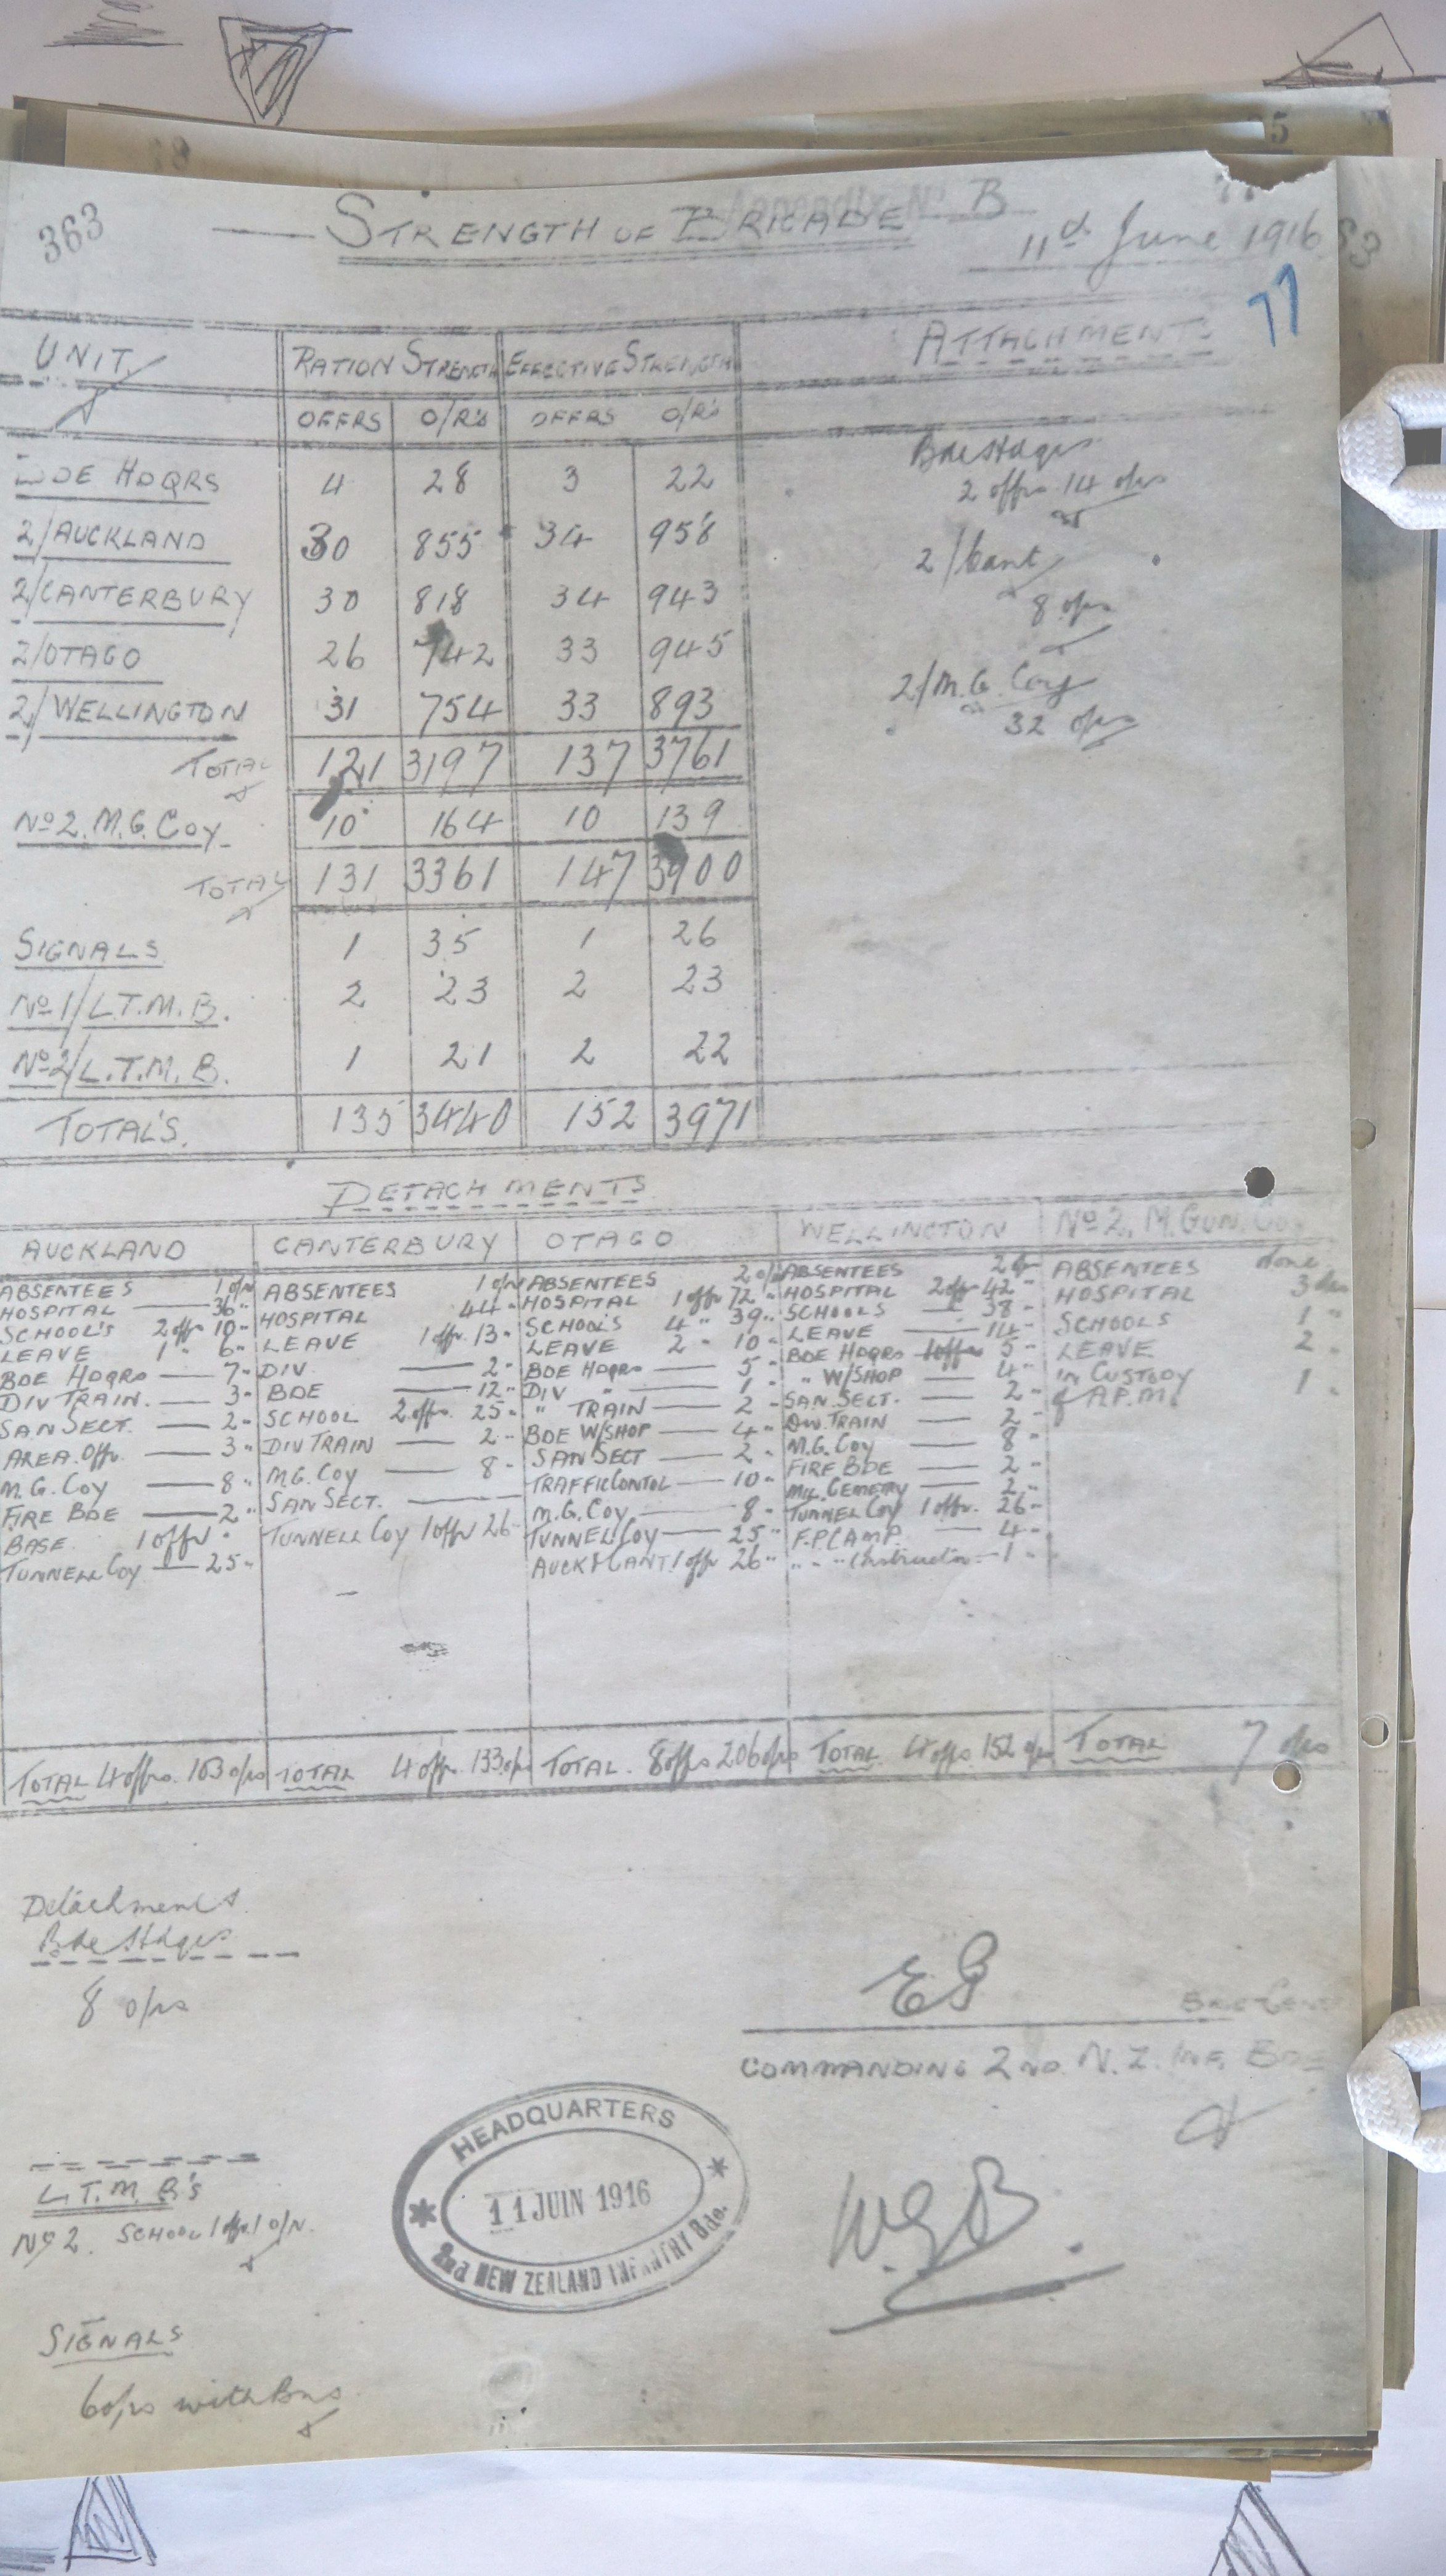 363
Appendix No B
STRENGTH OF BRIGADE
11th June 1916
77
UNIT. RATION STRENGTH EFFECTIVE STRENGTH ATTACHMENTS
OFFRS O/R's OFFRS O/R's
BDE HDQRS 4 28 3 22
2/AUCKLAND 30 855 34 958
2/CANTERBURY 30 818 34 943
2/OTAGO 26 742 33 945
2/WELLINGTON 31 754 33 893
TOTAL 121 3197 137 3761
No 2. M.G. Coy. 10 164 10 139
TOTAL 131 3361 147 3900
SIGNALS 1 35 1 26
No 1/L.T.M.B. 2 23 2 23
No 2/L.T.M.B. 1 21 2 22
TOTAL'S. 135 3440 152 3971
Bde Hdqrs
2 offrs 14 o/rs
2/Cant
8 o/rs
2/M.G. Coy
32 o/rs
DETACHMENTS
AUCKLAND
ABSENTEES 1 o/r
HOSPITAL 36 "
SCHOOL'S 2 offr 10 "
LEAVE 1 " 6 "
BDE HDQRS 7 "
DIV TRAIN. 3 "
SAN SECT. 2 "
AREA. Offr. 3 "
M.G. Coy 8 "
FIRE BDE 2 "
BASE. 1 offr "
TUNNELL Coy 25 "
TOTAL 4 offrs. 103 o/rs
CANTERBURY
ABSENTEES 1 o/r
HOSPITAL 44 "
LEAVE 1 offr. 13 "
DIV 2 "
BDE 12 "
SCHOOL 2 offr. 25 "
DIV TRAIN 2 "
M.G. Coy 8 "
SAN SECT.
TUNNELL Coy 1 offr 26 "
TOTAL 4 offr. 133 o/rs
OTAGO
ABSENTEES 2 o/rs
HOSPITAL 1 offr 72 "
SCHOOL'S 4 " 39 "
LEAVE 2 " 10 "
BDE HDQRS 5 "
DIV " 1 "
" TRAIN 2 "
BDE W/SHOP 4 "
SAN SECT 2 "
TRAFFIC CONTOL 10 "
M.G. Coy 8 "
TUNNEL Coy 25 "
AUCK & CANT 1 offr 26 "
TOTAL. 8 offrs 206 o/rs
WELLINGTON
ABSENTEES 2 o/r
HOSPITAL 2 offr 42 "
SCHOOLS 1 38 "
LEAVE 14 "
BDE HDQRS 1 offr 5 "
" W/SHOP 4 "
SAN. SECT. 2 "
DIV. TRAIN 2 "
M.G. Coy 8 "
FIRE BDE 2 "
MIL. CEMETRY 2 "
TUNNEL Coy 1 offr. 26 "
F.P CAMP. 4 "
" " " (Instructor 1 "
TOTAL. 4 offrs 152 o/rs
No 2. M. GUN. Coy
ABSENTEES
HOSPITAL 3 o/rs
SCHOOLS 1 "
LEAVE 2 "
In CUSTODY 1 "
of A.P.M.
TOTAL 7 o/rs
Detachments.
Bde Hdqrs
8 o/rs
EG
BRIG GENL
COMMANDING 2ND. N.Z. INF. BDE
WGB
HEADQUARTERS
11 JUIN 1916
2nd NEW ZEALAND INFANTRY Bde.
L.T.M.B's
No 2. SCHOOL 1 offr. 1 O/R.
SIGNALS
6 o/rs with Bns